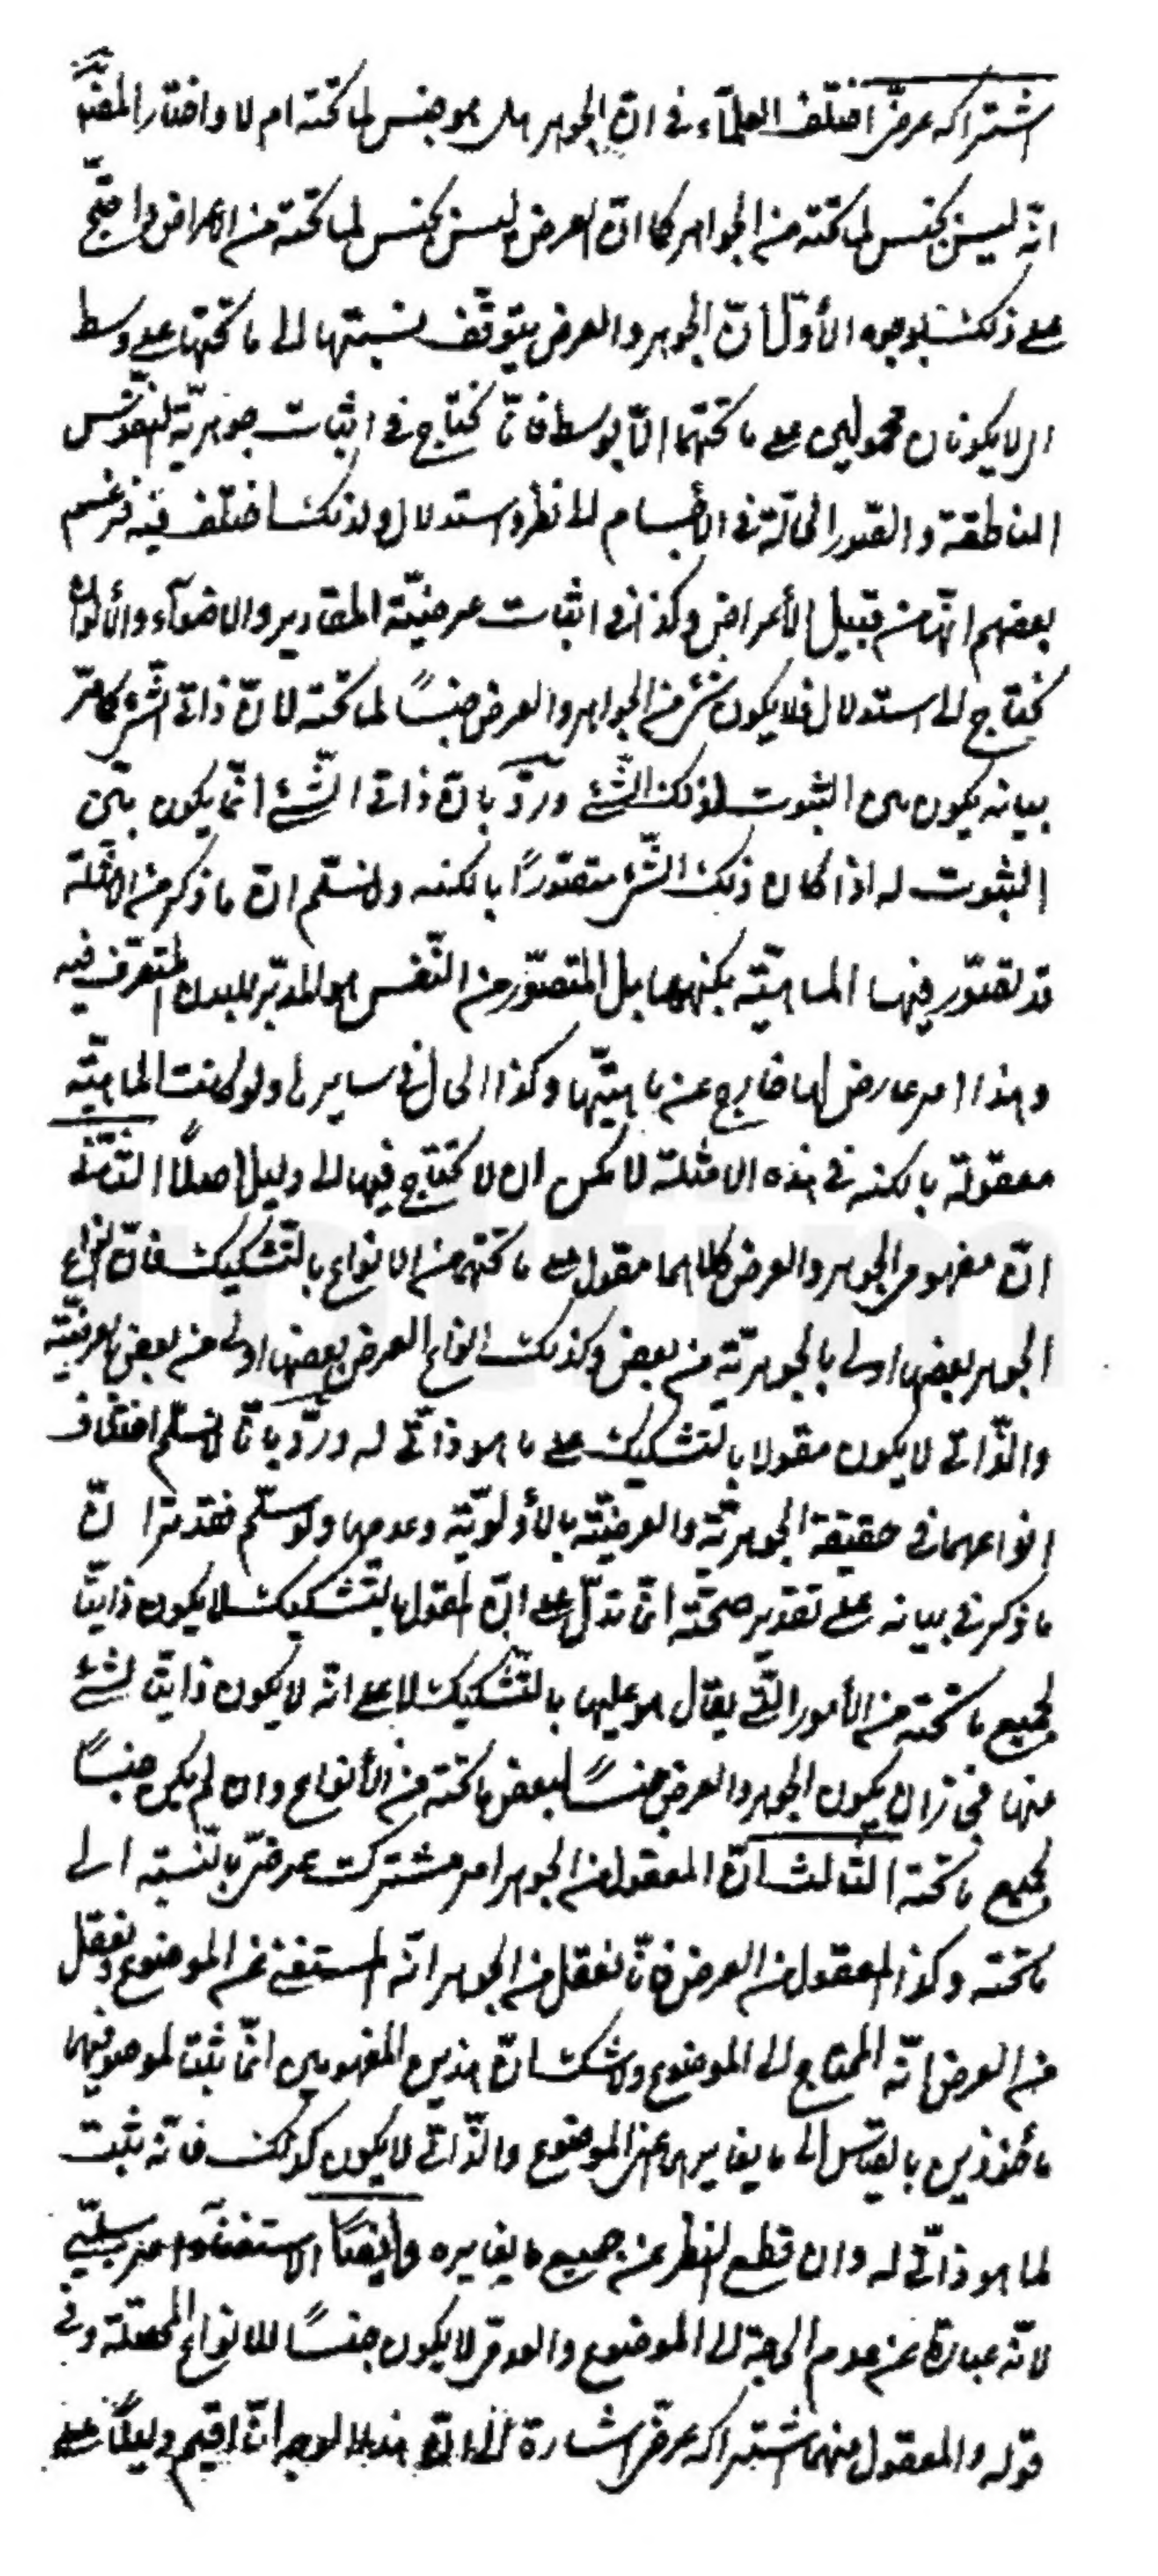 اشتراكه عرضىّ اختلف العلمآء فى انّ الجوهر هل هو جنس لما تحته ام لا واختار المصنّف
انّه ليس بجنس لما تحته من الجواهر كما انّ العرض ليس بجنس لما تحته من الاعراض واحتجّ
على ذلك بوجوه الأوّل انّ الجوهر والعرض يتوقّف نسبتهما الى ما تحتهما على وسط
اى لا يكونان محمولين على ما تحتهما الّا بوسط فانّا نحتاج فى اثبات جوهريّة النفوس
الناطقة والصّور الحالّة فى الأجسام الى نظر واستدلال ولذلك اختلف فيه فزعم
بعضهم انّها من قبيل الأعراض وكذا فى اثبات عرضيّة المقادير والاضوآء والألوان
نحتاج الى استدلال فلا يكون شئ من الجواهر والعرض جنسًا لما تحته لانّ ذاتى الشّئ كما مرّ
بيانه يكون بين الثبوت لذلك الشّئ وردّ بانّ ذاتى الشّئ انّما يكون بيّن
الثبوت له اذا كان ذلك الشّئ متصوّرًا بالكنه ولا نسلّم انّ ما ذكر من الامثلة
قد تصوّر فيها الماهيّة بكنهها بل المتصوّر من النّفس هو المدبّر للبدن المتصرّف فيه
وهذا امر عارض لها خارج عن ماهيّتها وكذا الحال فى سايرها ولو كانت الماهيّة
معقولة بالكنه فى هذه الامثلة لامكن ان لا نحتاج فيها الى دليل اصلًا الثّانى
انّ مفهومى الجوهر والعرض كلاهما مقول على ما تحتهما من الانواع بالتّشكيك فانّ انواع
الجوهر بعضها اولى بالجوهريّة من بعض وكذلك انواع العرض بعضها اولى من بعض بالعرضيّة
والذّاتى لا يكون مقولا بالتشكيك على ما هو ذاتّى له وردّ بانّا لا نسلّم اختلاف
انواعهما فى حقيقة الجوهريّة والعرضيّة بالأولويّة وعدمها ولو سلّم فقد مرّ انّ
ما ذكر فى بيانه على تقدير صحّته انّما تدلّ على انّ المقول بالتّشكيك لا يكون ذاتيّا
لجميع ما تحته من الأمور الّتى يقال هو عليها بالتّشكيك لا على انّه لا يكون ذاتيّا لشئ
منها فجاز ان يكون الجوهر والعرض جنسًا لبعض ما تحته من الأنواع وان لم يكن جنسًا
لجميع ما تحته الثّالث انّ المعقول من الجوهر امر مشترك عرضىّ بالنّسبة الى
ما تحته وكذا المعقول من العرض فانّا نعقل من الجوهر انّه المستغنى عن الموضوع ونعقل
من العرض انّه المحتاج الى الموضوع ولا شك انّ هذين المفهومين انّما ثبتا لموصوفيهما
مأخوذين بالقياس الى ما يغايرهما عنى الموضوع والذّاتّى لا يكون كذلك فانّه يثبت
لما هو ذاتّى له وان قطع النظر عن جميع ما يغايره وايضًا الاستغنآء امر سلبّى
لانّه عبارة عن عدم الحاجة الى الموضوع والعدمى لا يكون جنسًا للانواع المحصّلة وفى
قوله والمعقول منهما اشتراكه عرضىّ اشارة الى انّ هذا الوجه انّما اقيم دليلًا على